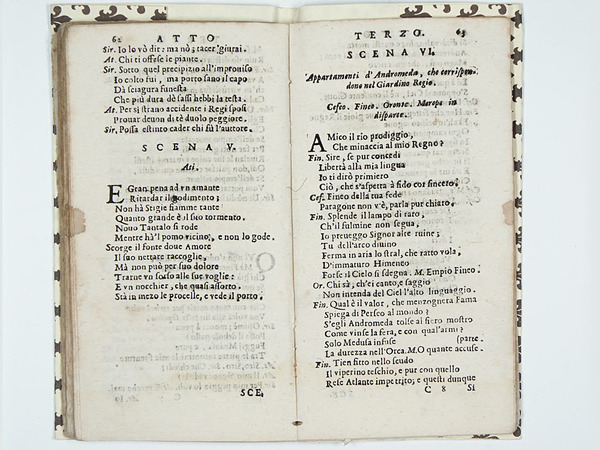 62 ATTO
Sir. Io lo vò dir: ma nò; tacer giurai.
At. Chi ti offese le piante.
Sir. Sotto quel precipizio all'improuiso
Io colto fui, ma porto sano il capo
Dà sciagura funesta
Che più dura dè sassi hebbi la testa.
At. Per sì strano accidente i Regi sposi
Prouar deuon di tè duolo peggiore.
Sir. Possa estinto cader chi fù l'auttore.
SCENA V.
Ati.
E Gran pena ad vn amante
Ritardar il godimento;
Non hà Stigie fiamme tante
Quanto grande è il suo tormento.
Nouo Tantalo si rode
Mentre hà'l pomo vicino, e non lo gode.
Scorge il fonte doue Amore
Il suo nettare raccoglie,
Mà non può per suo dolore
Trarne vn sorso alle sue voglie:
E vn nocchier, che quasi assorto
Stà in mezo le procelle, e vede il porto.
SCE.
TERZO. 63
SCENA VI.
Appartamenti d'Andromeda, che corrispondono
nel Giardino Regio.
Cefeo. Fineo. Oronte. Merope in
disparte.
AMico il rio prodiggio,
Che minaccia al mio Regno?
Fin. Sire, se pur concedi
Libertà alla mia lingua
Io ti dirò primiero
Ciò, che s'aspetta à fido cor sincero.
Cef. Fineo della tua fede
Paragone non v'è, parla pur chiaro.
Fin. Splende il lampo di raro,
Ch'il fulmine non segua,
Io preueggo Signor alte ruine;
Tu dell'arco diuino
Ferma in aria lo stral, che ratto vola,
D'immaturo Himeneo
Forse il Cielo si sdegna. M. Empio Fineo.
Or. Chi sà, ch'ei canto, e saggio
Non intenda del Ciel l'alto linguaggio.
Fin. Qual è il valor, che menzognera Fama
Spiega di Perseo al mondo?
S'egli Andromeda tolse al fiero mostro
Come vinse la fera, e con qual'armi?
Solo Medusa infuse (parte.
La durezza nell'Orca. M. O quante accuse.
Fin. Tien fitto nello scudo
Il viperino teschio, e pur con quello
Rese Atlante impetrito; e questi dunque
C 8 Si